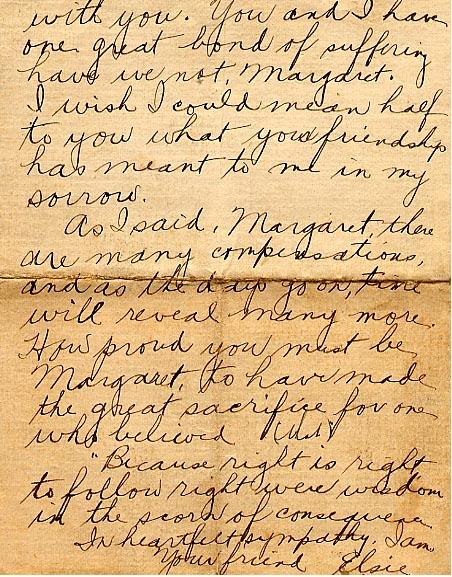 with you. You and I have
one great bond of suffering
have we not, Margaret.
I wish I could mean half
to you what your friendship
has meant to me in my
sorrow.
As I said, Margaret, there
are many compensations,
and as the days go on, time
will reveal many more.
How proud you must be,
Margaret, to have made
the great sacrifice for one
who believed (that)
"Because right is right
to follow right were wisdom
in the scorn of consequence
In heartfelt sympathy, I am
Your friend Elsie